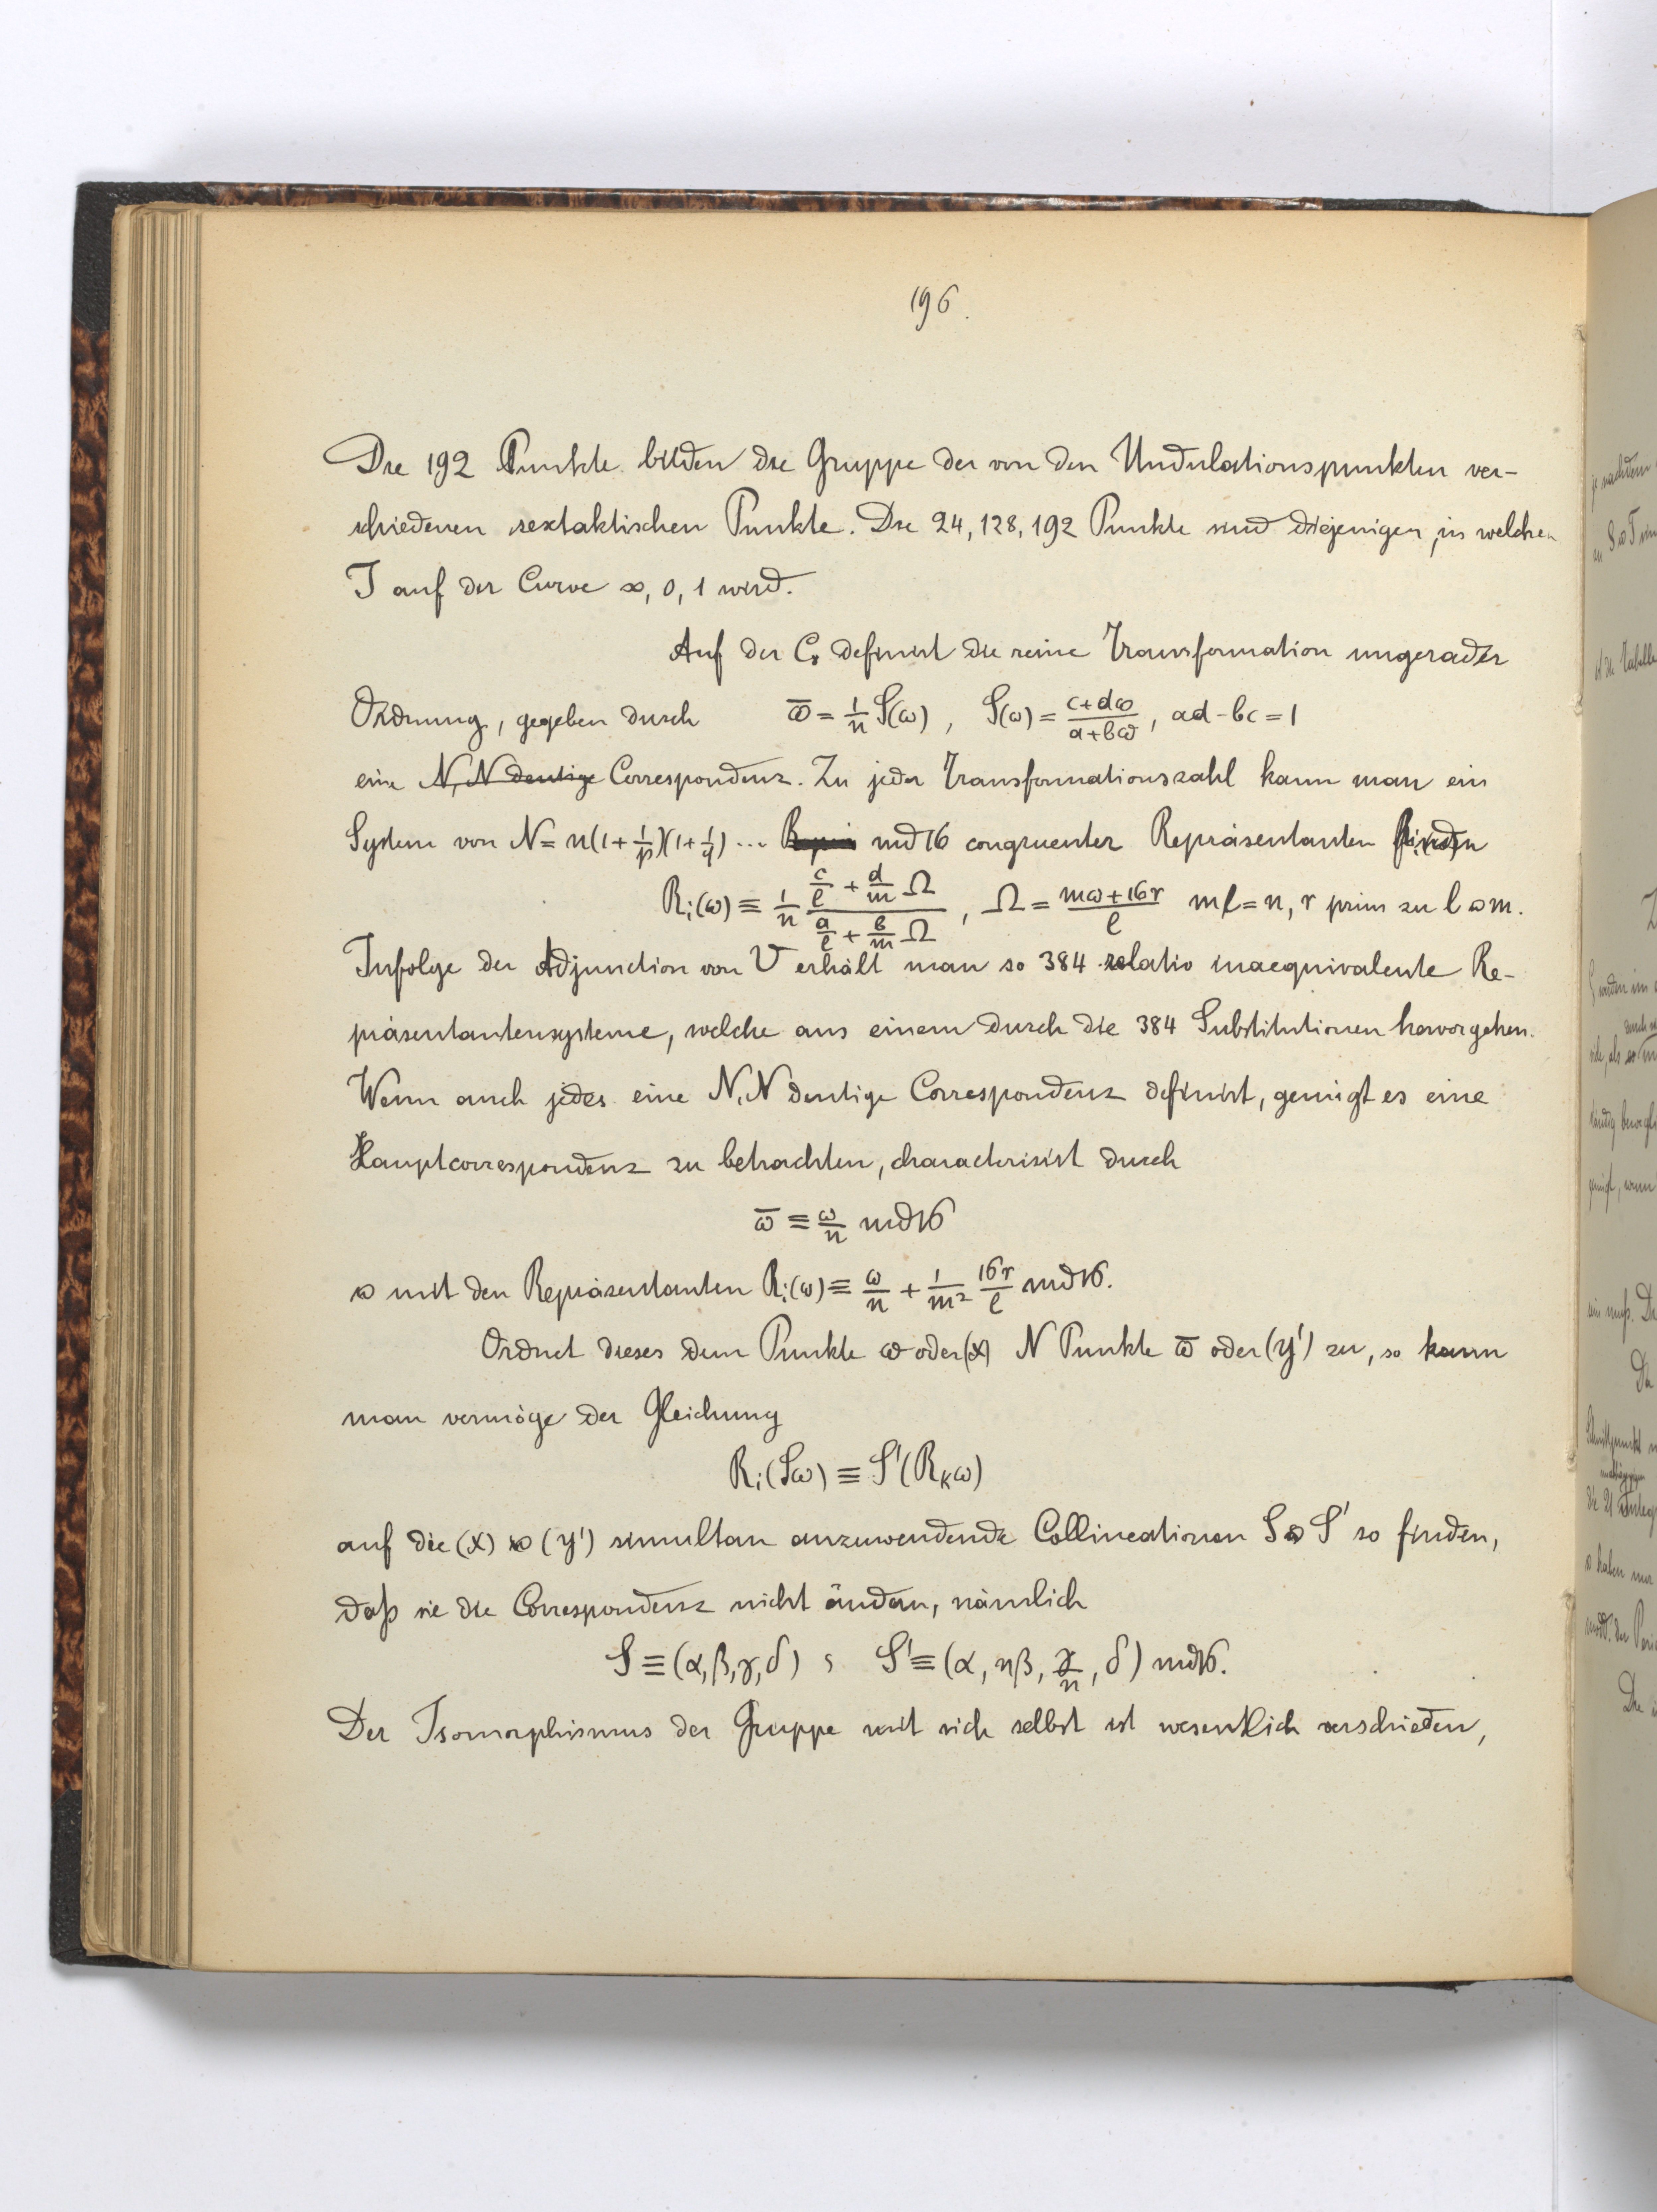 196.
Die 192 Punkte bilden die Gruppe der von den Undulationspunkten ver-
schiedenen sextaktischen Punkte. Die 24, 128, 192 Punkte sind diejenigen, in welchen
J auf der Curve ∞, 0, 1 wird.
Auf der C₈ definirt die reine Transformation ungerader
Ordnung, gegeben durch ω̄ = 1/n S(ω), S(ω) = (c+dω)/(a+bω), ad-bc=1
eine N,N deutige Correspondenz. Zu jeder Transformationszahl kann man ein
System von N = n(1+1/p)(1+1/q) ... mod 16 congruenter Repräsentanten finden
Ri(ω) ≡ 1/n (c/l + d/m Ω)/(a/l + b/m Ω), Ω = (mω+16r)/l ml=n, r prim zu l u m.
Infolge der Adjunction von V erhält man so 384 relativ inaequivalente Re-
präsentantensysteme, welche aus einem durch die 384 Substitutionen hervorgehen.
Wenn auch jedes eine N,N deutige Correspondenz definirt, genügt es eine
Hauptcorrespondenz zu betrachten, characterisirt durch
ω̄ ≡ ω/n mod 16
u mit den Repräsentanten Ri(ω) ≡ ω/n + 1/m² 16r/l mod 16.
Ordnet dieses dem Punkte ω oder (x) N Punkte ω̄ oder (y') zu, so kann
man vermöge der Gleichung
Ri(Sω) ≡ S'(Rkω)
auf die (x) u (y') simultan anzuwendende Collineationen S u S' so finden,
daß sie die Correspondenz nicht ändern, nämlich
S ≡ (α, β, γ, δ) ; S' ≡ (α, nβ, γ/n, δ) mod 16.
Der Isomorphismus der Gruppe mit sich selbst ist wesentlich verschieden,